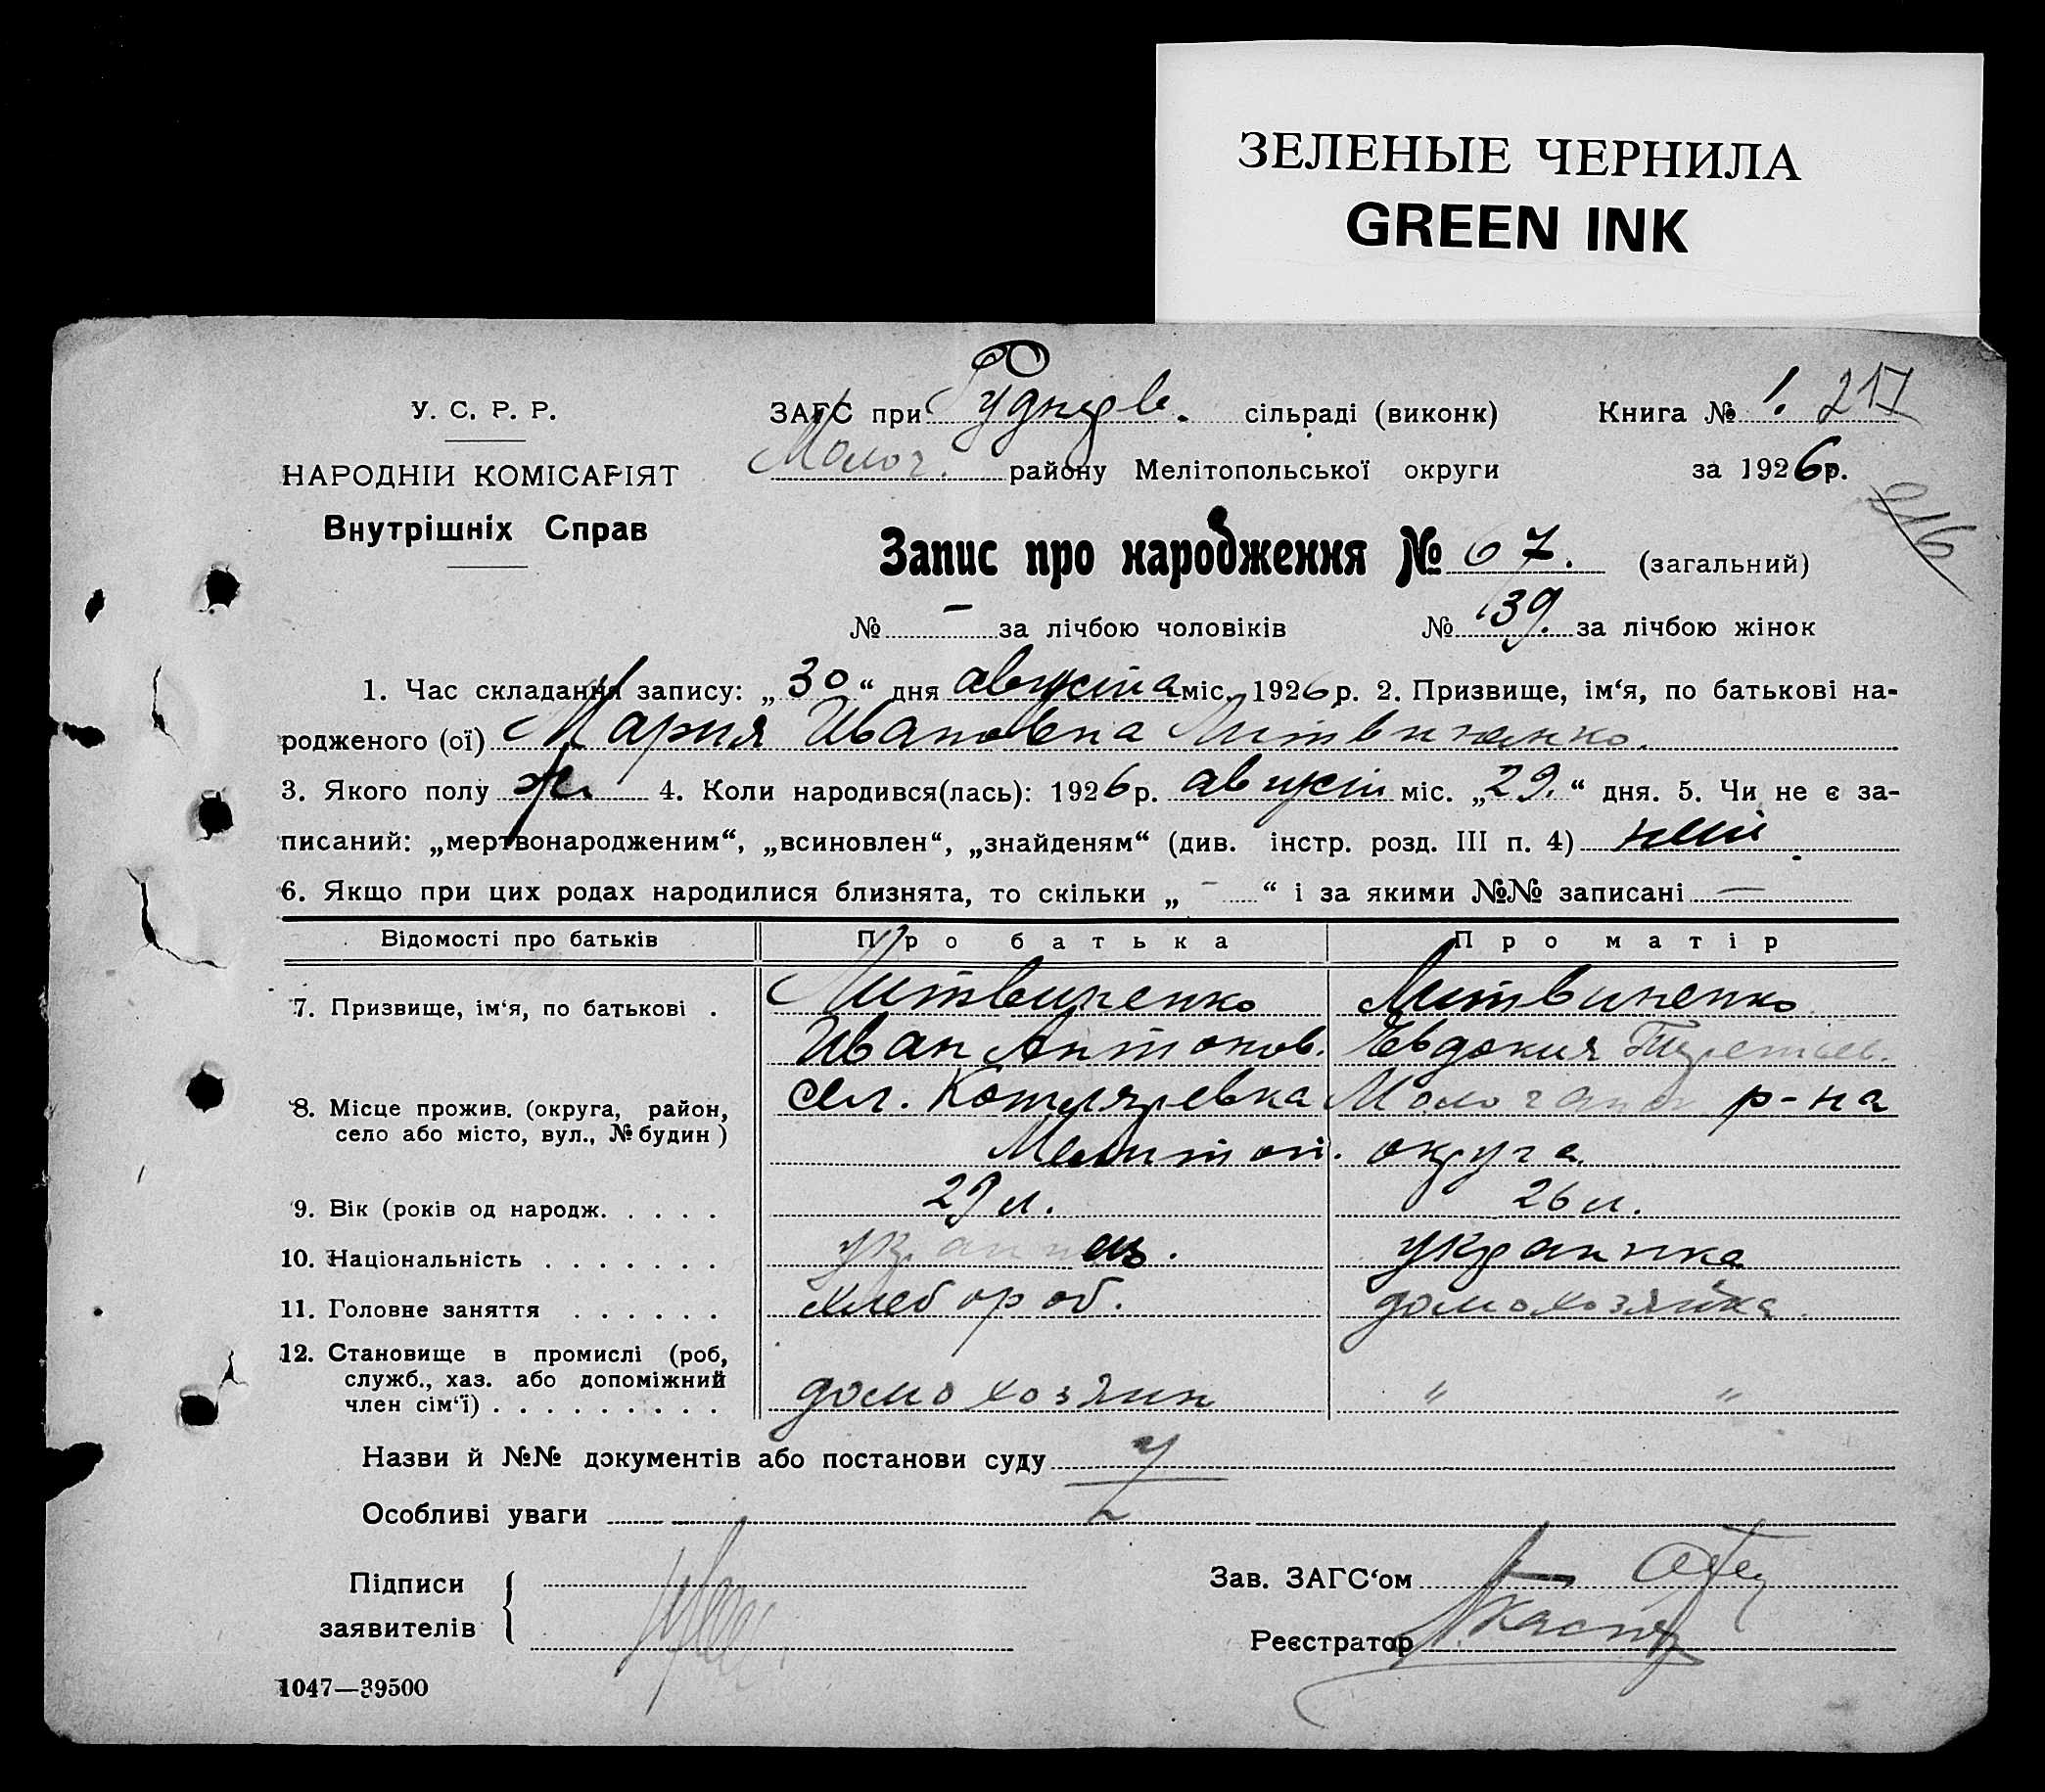 ЗЕЛЕНЫЕ ЧЕРНИЛА
GREEN INK
У. С. Р. Р.
НАРОДНІЙ КОМІСАРІЯТ
Внутрішніх Справ
ЗАГС при Рудняв. сільраді (виконк)
Молоч. району Мелітопольської округи
Книга № 1. 217
за 1926 р.
216
Запис про народження № 67. (загальний)
№ – за лічбою чоловіків № 39. за лічбою жінок
1. Час складання запису: „30“ дня августа міс. 1926 р. 2. Призвище, ім‘я, по батькові на-
родженого (ої) Мария Ивановна Литвиненко.
3. Якого полу ж. 4. Коли народився(лась): 1926 р. август міс. „29.“ дня. 5. Чи не є за-
писаний: „мертвонародженим“, „всиновлен“, „знайденям“ (див. інстр. розд. III п. 4) нет.
6. Якщо при цих родах народилися близнята, то скільки „–“ і за якими №№ записані —
Відомості про батьків Про батька Про матір
7. Призвище, ім‘я, по батькові . Литвиненко Литвиненко
Иван Антонов. Евдокия
8. Місце прожив. (округа, район, сел. Котляревка Молочанск р-на
село або місто, вул., № будин) Мелитоп. округа
9. Вік (років од народж. . . . . 29 л. 26 л.
10. Національність . . . . . . . украинец. украинка
11. Головне заняття . . . . . . хлебороб. домохозяйка.
12. Становище в промислі (роб,
служб., хаз. або допоміжний
член сім‘ї) . . . . . . . . . домохозяин " "
Назви й №№ документів або постанови суду
Особливі уваги
Підписи
заявителів
Зав. ЗАГС‘ом
Реєстратор
1047—39500